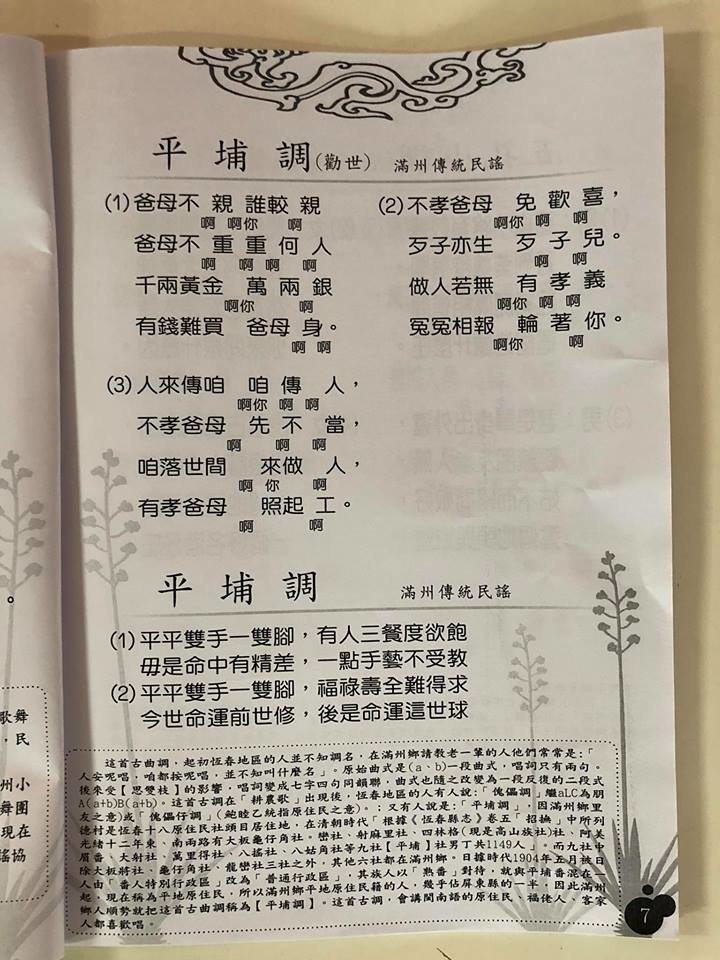 平埔調(勸世) 滿州傳統民謠
(1)爸母不 親 誰較 親
啊 啊你 啊
爸母不 重 重 何 人
啊 啊 啊 啊
千兩黃金 萬 兩 銀
啊你 啊
有錢難買 爸母 身。
啊 啊
(2)不孝爸母 免 歡 喜，
啊你 啊 啊
歹子亦生 歹 子 兒。
啊 啊
做人若無 有 孝 義
啊你 啊 啊
冤冤相報 輪 著 你。
啊你 啊
(3)人來傳咱 咱 傳 人，
啊你 啊 啊
不孝爸母 先 不 當，
啊 啊 啊
咱落世間 來做 人，
啊 你 啊
有孝爸母 照起 工。
啊 啊
平埔調 滿州傳統民謠
(1)平平雙手一雙腳，有人三餐度欲飽
毋是命中有精差，一點手藝不受教
(2)平平雙手一雙腳，福祿壽全難得求
今世命運前世修，後是命運這世球
這首古曲調，起初恆春地區的人並不知調名，在滿州鄉請教老一輩的人他們常常是:「
人安呢唱，咱都按呢唱，並不知叫什麼名」。原始曲式是(a、b)一段曲式，唱詞只有兩句。
後來受【思雙枝】的影響，唱詞變成七字四句同韻聯，曲式也隨之改變為一段反復的二段式
A(a+b)B(a+b)。這首古調在「耕農歌」出現後，恆春地區的人有人說:「傀儡調」繼aLC為朋
友之意)或「傀儡仔調」(鮑睦乙統指原住民之意)。；又有人說是:「平埔調」，因滿州鄉里
德村是恆春十八原住民社頭目居住地，在清朝時代「根據《恆春縣志》卷五「招撫」中所列
光緒十二年東、南兩路有大板龜仔角社。巒社、射麻里社、四林格(現是高山族社)社、阿美
眉番、大射社、萬里得社、八搖社、八姑角社等九社【平埔】社男丁共1149人」。而九社中
除大板埒社、龜仔角社、龍巒社三社之外，其他六社都在滿州鄉。日據時代1904年五月被日
人由「番人特別行政區」改為「普通行政區」，其族人以「熟番」對待，就與平埔番混在一
起，現在稱為平地原住民，所以滿州鄉平地原住民籍的人，幾乎佔屏東縣的一半，因此滿州
鄉人順勢就把這首古曲調稱為【平埔調】。這首古調，會講閩南語的原住民、福佬人、客家
人都喜歡唱。
7
。
歌舞
，民
州小
舞團
現在
謠協